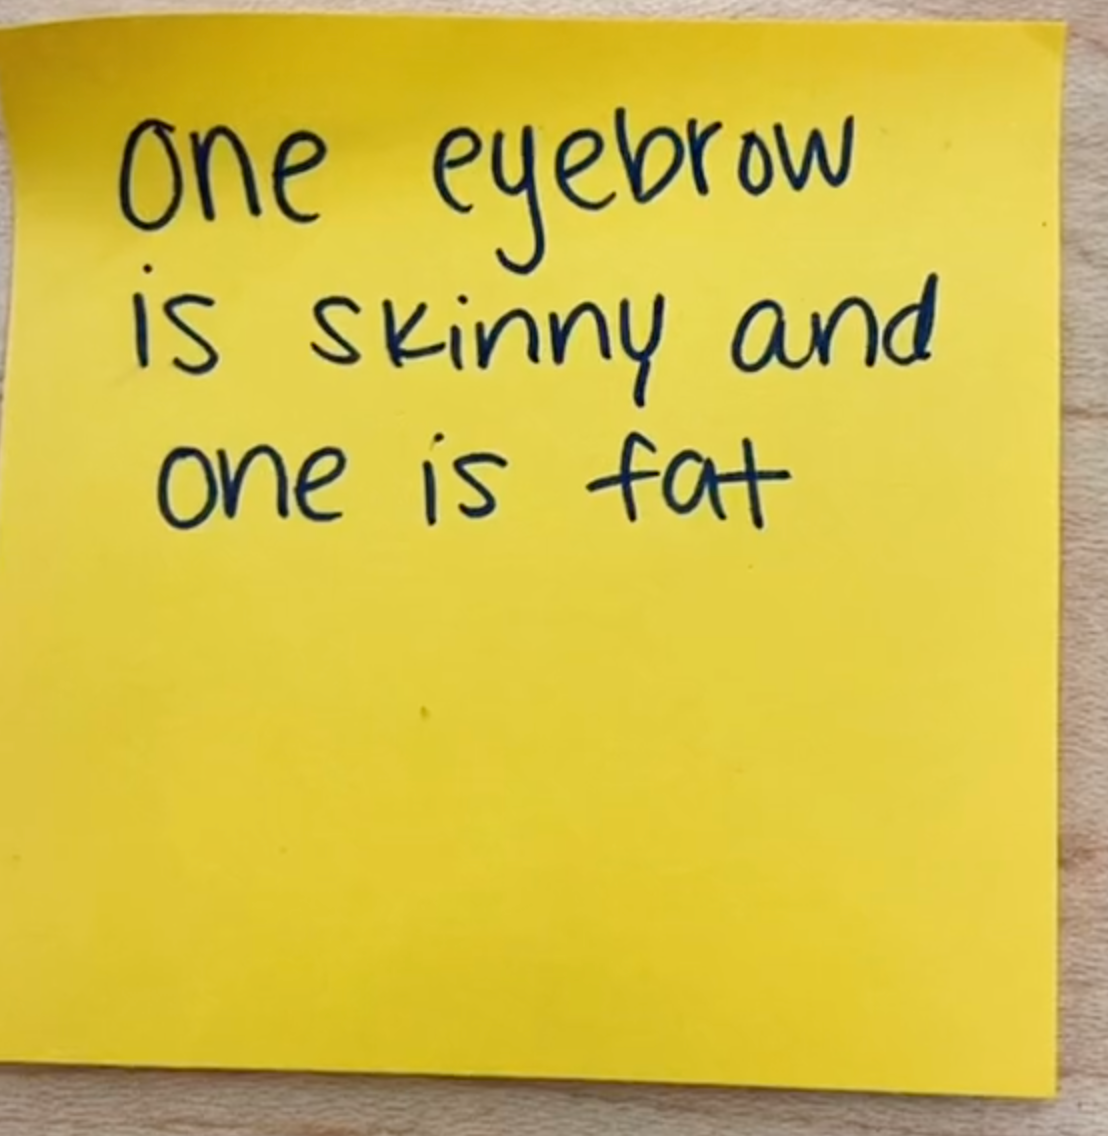 One eyebrow
is skinny and
one is fat